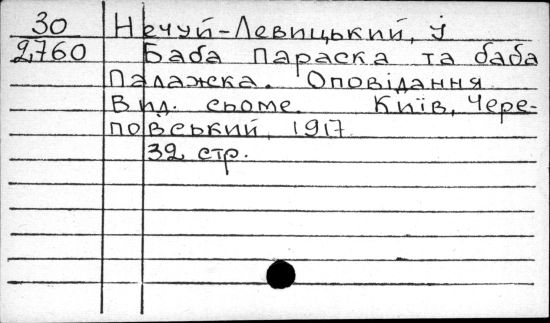 30
2760
Нечуй-Левицький, І
Баба Параска та баба
Палажка. Оповідання
Вид. сьоме. Київ, Чере-
повський, 1917
32 стр.